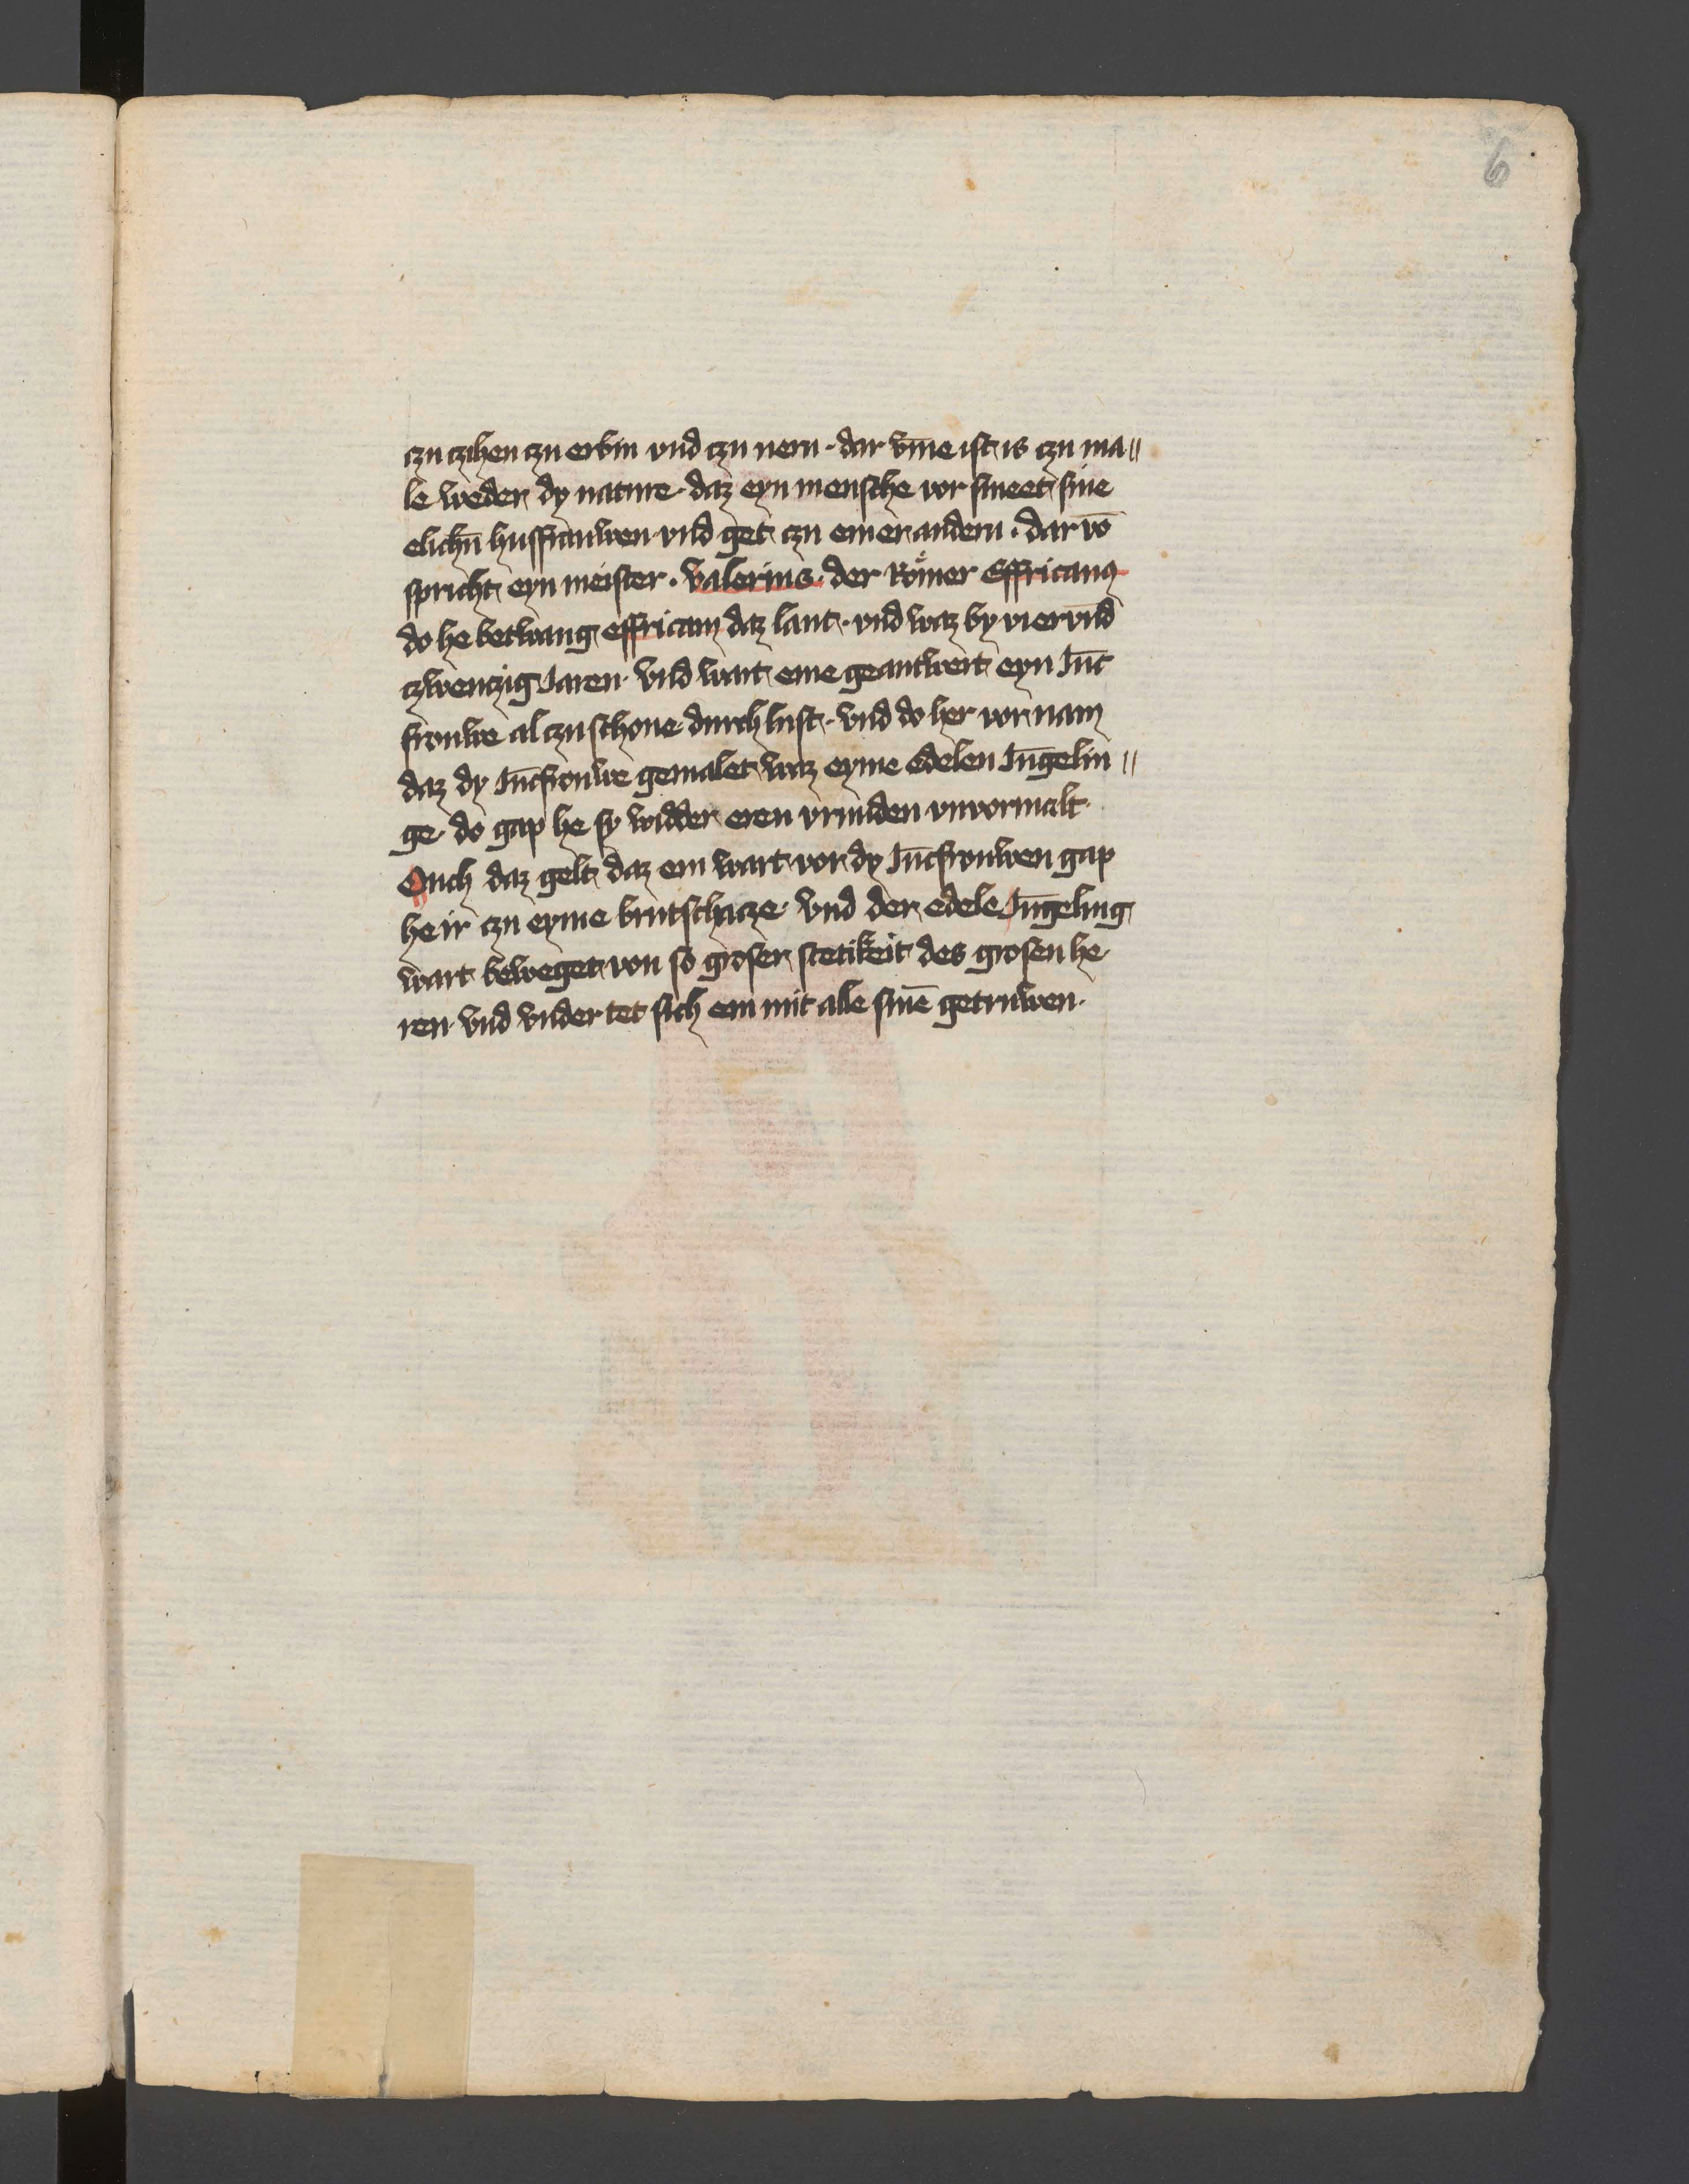 6
czu czihen czu erbin vnd czu nern · dar vm̄e ist is czu ma〃
le weder dy nature · daz eyn mensche vor smeet sine
elichn̄ husfrauwen vnd get czu einer andern · dar vō
spricht eyn meister · Valerius · der Römer Effricanꝰ
do he betwang effricam daz lant · vnd waz by vier vn̄d
czwenczig Jaren · Vnd wart eme geantwert eyn Jūc
frouwe al czu schone durch lust · vnd do her vor nam
daz dy Jūcfrouwe gemalet waz eyme edelen Jūgelin〃
ge · do gap he sy widder eren vrunden vnvormalt ·
Ouch daz gelt daz em wart vor dy Jūcfrouwen gap
he ir czu eyme brutschacze · Vnd der edele Jūgeling
wart beweget von so groser stetikeit des grosen he
ren · vnd vnder tet sich em mit alle sinē getruwen ·